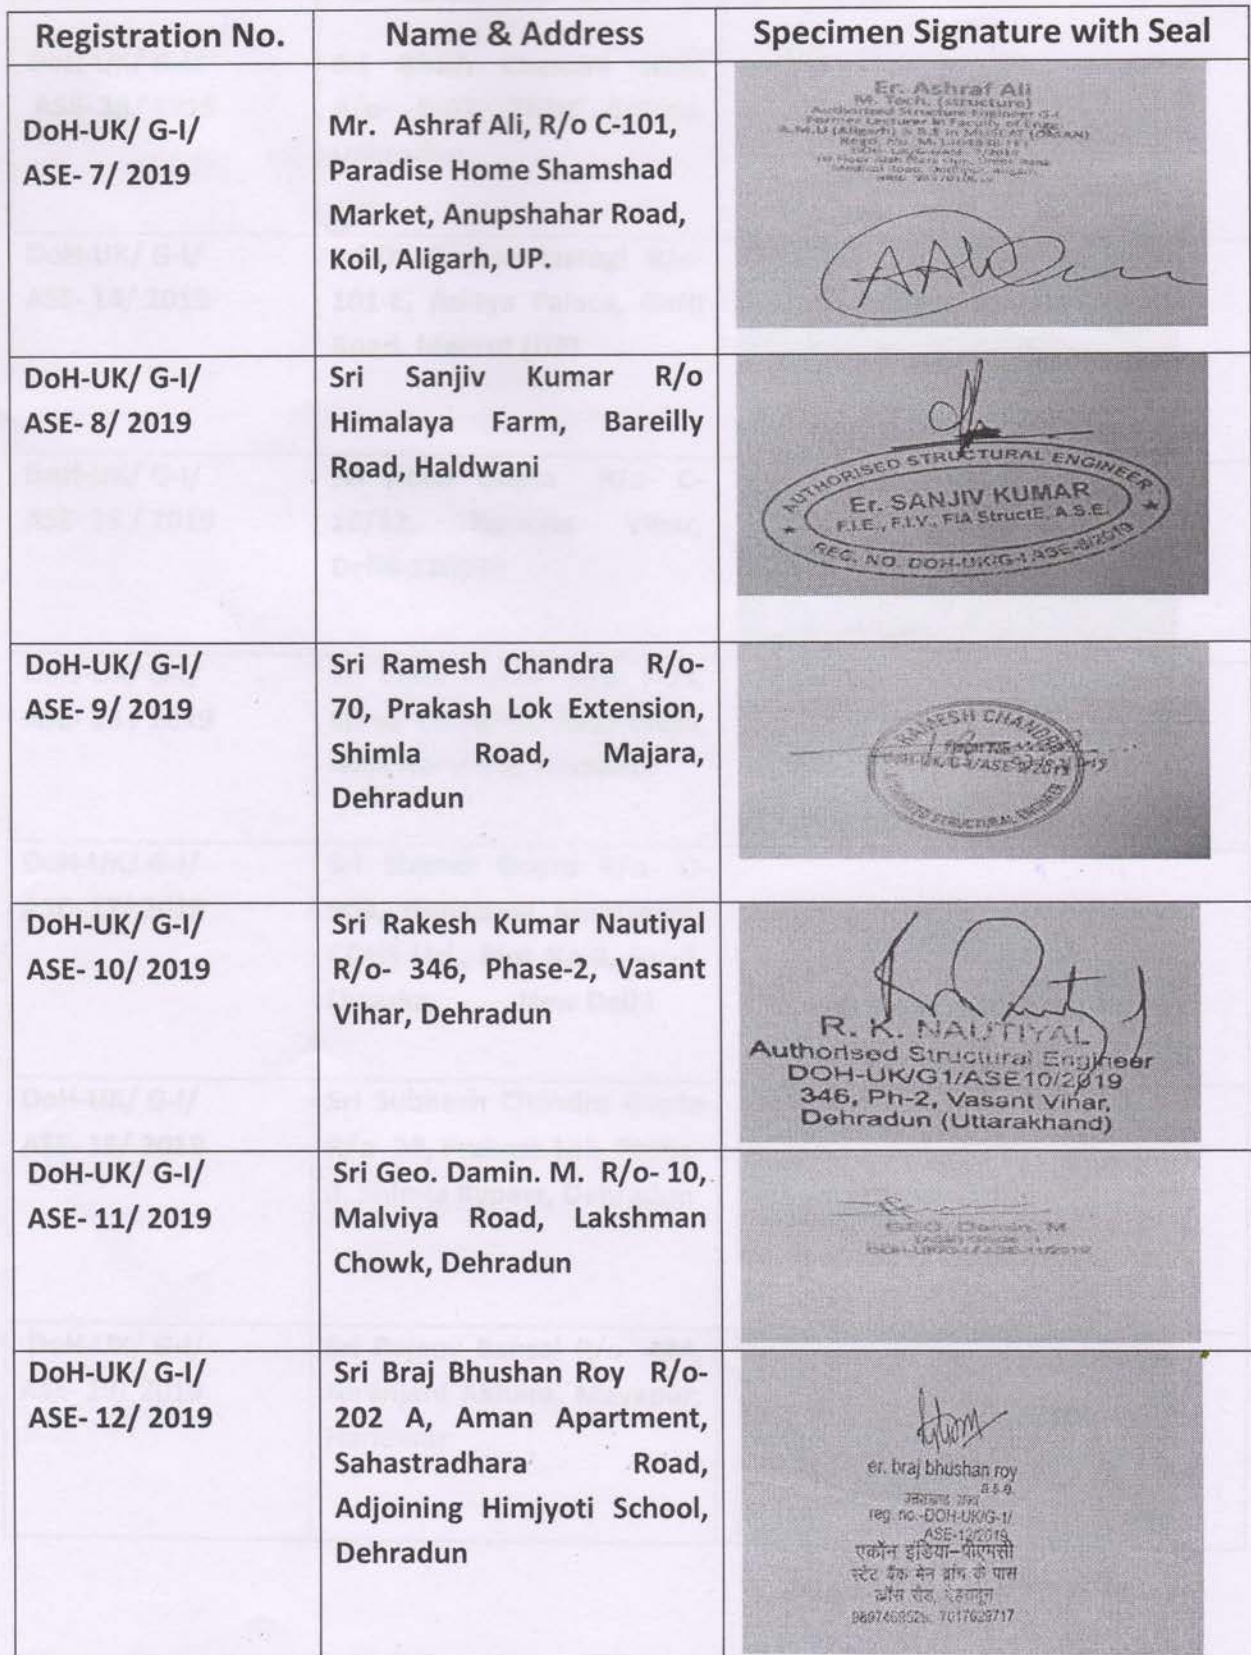 Registration No.
Name & Address
Specimen Signature with Seal
DoH-UK/ G-I/
ASE- 7/ 2019
Mr. Ashraf Ali, R/o C-101,
Paradise Home Shamshad
Market, Anupshahar Road,
Koil, Aligarh, UP.
Er. Ashraf Ali
M. Tech. (structure)
Authorised Structure Engineer G-I
Former Lecturer in Faculty of Engg.
A.M.U (Aligarh) & S.E in MUSCAT (OMAN)
DoH-UK/ G-I/
ASE- 8/ 2019
Sri Sanjiv Kumar R/o
Himalaya Farm, Bareilly
Road, Haldwani
AUTHORISED STRUCTURAL ENGINEER
Er. SANJIV KUMAR
F.I.E., F.I.V., FIA StructE, A.S.E.
REG. NO. DOH-UK/G-1 ASE-8/2019
DoH-UK/ G-I/
ASE- 9/ 2019
Sri Ramesh Chandra R/o-
70, Prakash Lok Extension,
Shimla Road, Majara,
Dehradun
RAMESH CHANDRA
DOH-UK/G-I/ASE-9/2019
STRUCTURAL ENGINEER
DoH-UK/ G-I/
ASE- 10/ 2019
Sri Rakesh Kumar Nautiyal
R/o- 346, Phase-2, Vasant
Vihar, Dehradun
R. K. NAUTIYAL
Authorised Structural Engineer
DOH-UK/G1/ASE10/2019
346, Ph-2, Vasant Vihar,
Dehradun (Uttarakhand)
DoH-UK/ G-I/
ASE- 11/ 2019
Sri Geo. Damin. M. R/o- 10,
Malviya Road, Lakshman
Chowk, Dehradun
GEO. Damin. M
DOH-UK/G-I/ASE-11/2019
DoH-UK/ G-I/
ASE- 12/ 2019
Sri Braj Bhushan Roy R/o-
202 A, Aman Apartment,
Sahastradhara Road,
Adjoining Himjyoti School,
Dehradun
er. braj bhushan roy
a.s.e.
reg. no.-DOH-UK/G-1/
ASE-12/2019
एकॉन इंडिया-पीएमसी
स्टेट बैंक मेन ब्रांच के पास
क्रॉस रोड, देहरादून
7017629717